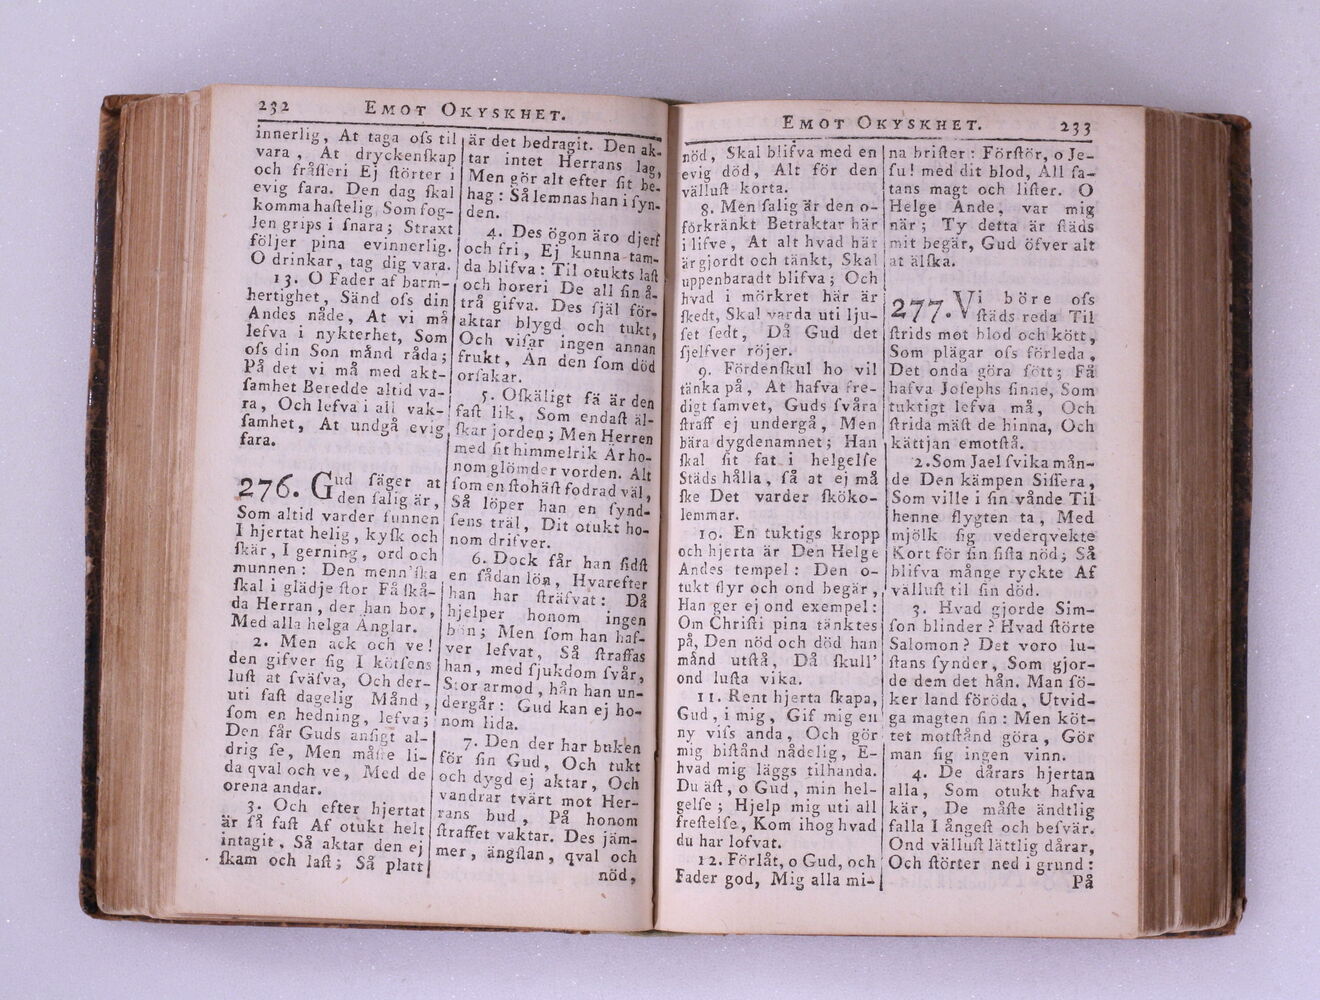 232 EMOT OKYSKHET.
innerlig, At taga oſs til
vara, At dryckenſkap
och fråſſeri Ej ſtörter i
evig fara. Den dag ſkal
komma haſtelig, Som fog-
len grips i ſnara; Straxt
följer pina evinnerlig.
O drinkar, tag dig vara.
13. O Fader af barm-
hertighet, Sänd oſs din
Andes nåde, At vi må
lefva i nykterhet, Som
oſs din Son månd råda;
På det vi må med akt-
ſamhet Beredde altid va-
ra, Och lefva i all vak-
ſamhet, At undgå evig
fara.
276. Gud ſäger at
den ſalig är,
Som altid varder funnen
I hjertat helig, kyſk och
ſkär, I gerning, ord och
munnen: Den menn'ſka
ſkal i glädje ſtor Få ſkå-
da Herran, der han bor,
Med alla helga Änglar.
2. Men ack och ve!
den gifver ſig I kötſens
luſt at ſväfva, Och der-
uti faſt dagelig Månd,
ſom en hedning, lefva;
Den får Guds anſigt al-
drig ſe, Men måſte li-
da qval och ve, Med de
orena andar.
3. Och efter hjertat
är ſå faſt Af otukt helt
intagit, Så aktar den ej
ſkam och laſt; Så platt
är det bedragit. Den ak-
tar intet Herrans lag,
Men gör alt efter ſit be-
hag: Så lemnas han i ſyn-
den.
4. Des ögon äro djerf
och fri, Ej kunna tam-
da blifva: Til otukts laſt
och horeri De all ſin å-
trå gifva. Des ſjäl för-
aktar blygd och tukt,
Och viſar ingen annan
frukt, Än den ſom död
orſakar.
5. Oſkäligt fä är den
faſt lik, Som endaſt äl-
ſkar jorden; Men Herren
med ſit himmelrik Är ho-
nom glömder vorden. Alt
ſom en ſtohäſt fodrad väl,
Så löper han en ſynd-
ſens träl, Dit otukt ho-
nom drifver.
6. Dock får han ſidſt
en ſådan lön, Hvarefter
han har ſträfvat: Då
hjelper honom ingen
bön; Men ſom han haf-
ver lefvat, Så ſtraffas
han, med ſjukdom ſvår,
Stor armod, hån han un-
dergår: Gud kan ej ho-
nom lida.
7. Den der har buken
för ſin Gud, Och tukt
och dygd ej aktar, Och
vandrar tvärt mot Her-
rans bud, På honom
ſtraffet vaktar. Des jäm-
mer, ängſlan, qval och
nöd,
EMOT OKYSKHET. 233
nöd, Skal blifva med en
evig död, Alt för den
välluſt korta.
8. Men ſalig är den o-
förkränkt Betraktar här
i lifve, At alt hvad här
är gjordt och tänkt, Skal
uppenbaradt blifva; Och
hvad i mörkret här är
ſkedt, Skal varda uti lju-
ſet ſedt, Då Gud det
ſjelfver röjer.
9. Fördenſkul ho vil
tänka på, At hafva fre-
digt ſamvet, Guds ſvåra
ſtraff ej undergå, Men
bära dygdenamnet; Han
ſkal ſit fat i helgelſe
Städs hålla, ſå at ej må
ſke Det varder ſköko-
lemmar.
10. En tuktigs kropp
och hjerta är Den Helge
Andes tempel: Den o-
tukt flyr och ond begär,
Han ger ej ond exempel:
Om Chriſti pina tänktes
på, Den nöd och död han
månd utſtå, Då ſkull'
ond luſta vika.
11. Rent hjerta ſkapa,
Gud, i mig, Gif mig en
ny viſs anda, Och gör
mig biſtånd nådelig, E-
hvad mig läggs tilhanda.
Du äſt, o Gud, min hel-
gelſe; Hjelp mig uti all
freſtelſe, Kom ihog hvad
du har lofvat.
12. Förlåt, o Gud, och
Fader god, Mig alla mi-
na briſter: Förſtör, o Je-
ſu! med dit blod, All ſa-
tans magt och liſter. O
Helge Ande, var mig
när; Ty detta är ſtäds
mit begär, Gud öfver alt
at älſka.
277. Vi böre oſs
ſtäds reda Til
ſtrids mot blod och kött,
Som plägar oſs förleda,
Det onda göra ſött; Få
hafva Joſephs ſinne, Som
tuktigt lefva må, Och
ſtrida mäſt de hinna, Och
kättjan emotſtå.
2. Som Jael ſvika mån-
de Den kämpen Siſſera,
Som ville i ſin vånde Til
henne flygten ta, Med
mjölk ſig vederqvekte
Kort för ſin ſiſta nöd; Så
blifva månge ryckte Af
välluſt til ſin död.
3. Hvad gjorde Sim-
ſon blinder? Hvad ſtörte
Salomon? Det voro lu-
ſtans ſynder, Som gjor-
de dem det hån. Man ſö-
ker land föröda, Utvid-
ga magten ſin: Men köt-
tet motſtånd göra, Gör
man ſig ingen vinn.
4. De dårars hjertan
alla, Som otukt hafva
kär, De måſte ändtlig
falla I ångeſt och beſvär.
Ond välluſt lättlig dårar,
Och ſtörter ned i grund:
På